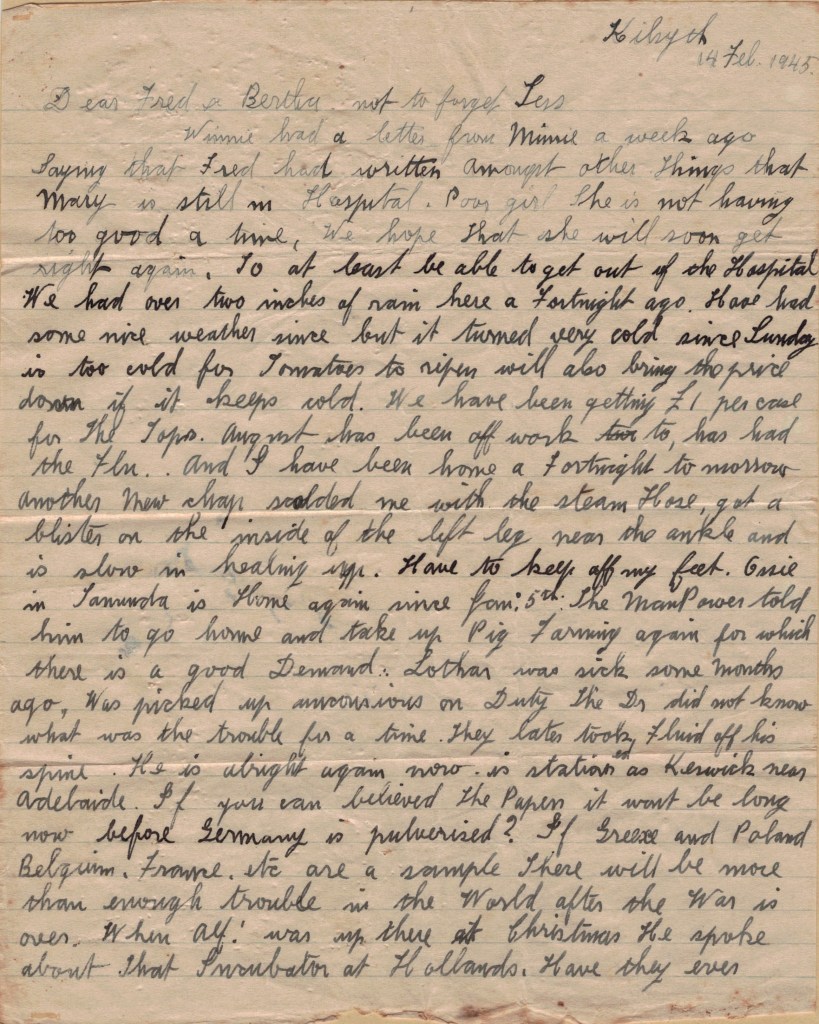 Kilsyth
14 Feb. 1945.
Dear Fred & Bertha not to forget Less
Winnie had a letter from Minnie a week ago
Saying that Fred had written amongst other things that
Mary is still in Hospital. Poor girl She is not having
too good a time, We hope that she will soon get
right again. To at least be able to get out of the Hospital
We had over two inches of rain here a Fortnight ago. Have had
some nice weather since but it turned very cold since Sunday
is too cold for Tomatoes to ripen will also bring the price
down if it keeps cold. We have been getting £1 per case
for the Tops. August has been off work to, has had
the Flu.. And I have been home a Fortnight to morrow
another new chap scalded me with the steam Hose, got a
blister on the inside of the left leg near the ankle and
is slow in healing up. Have to keep off my feet. Ossie
in Tanunda is Home again since Jan: 5th: The ManPower told
him to go home and take up Pig Farming again for which
there is a good Demand.. Lothar was sick some months
ago, Was picked up unconsious on Duty The Dr did not know
what was the trouble for a time. They later took Fluid off his
spine. He is alright again now. is stationed as Keswick near
Adelaide. If you can believed The Papers it wont be long
now before Germany is pulverised? If Greece and Poland
Belguim, France, etc are a sample There will be more
than enough trouble in the World after the War is
over. When Alf! was up there at Christmas He spoke
about that Incubator at Hollands. Have they ever